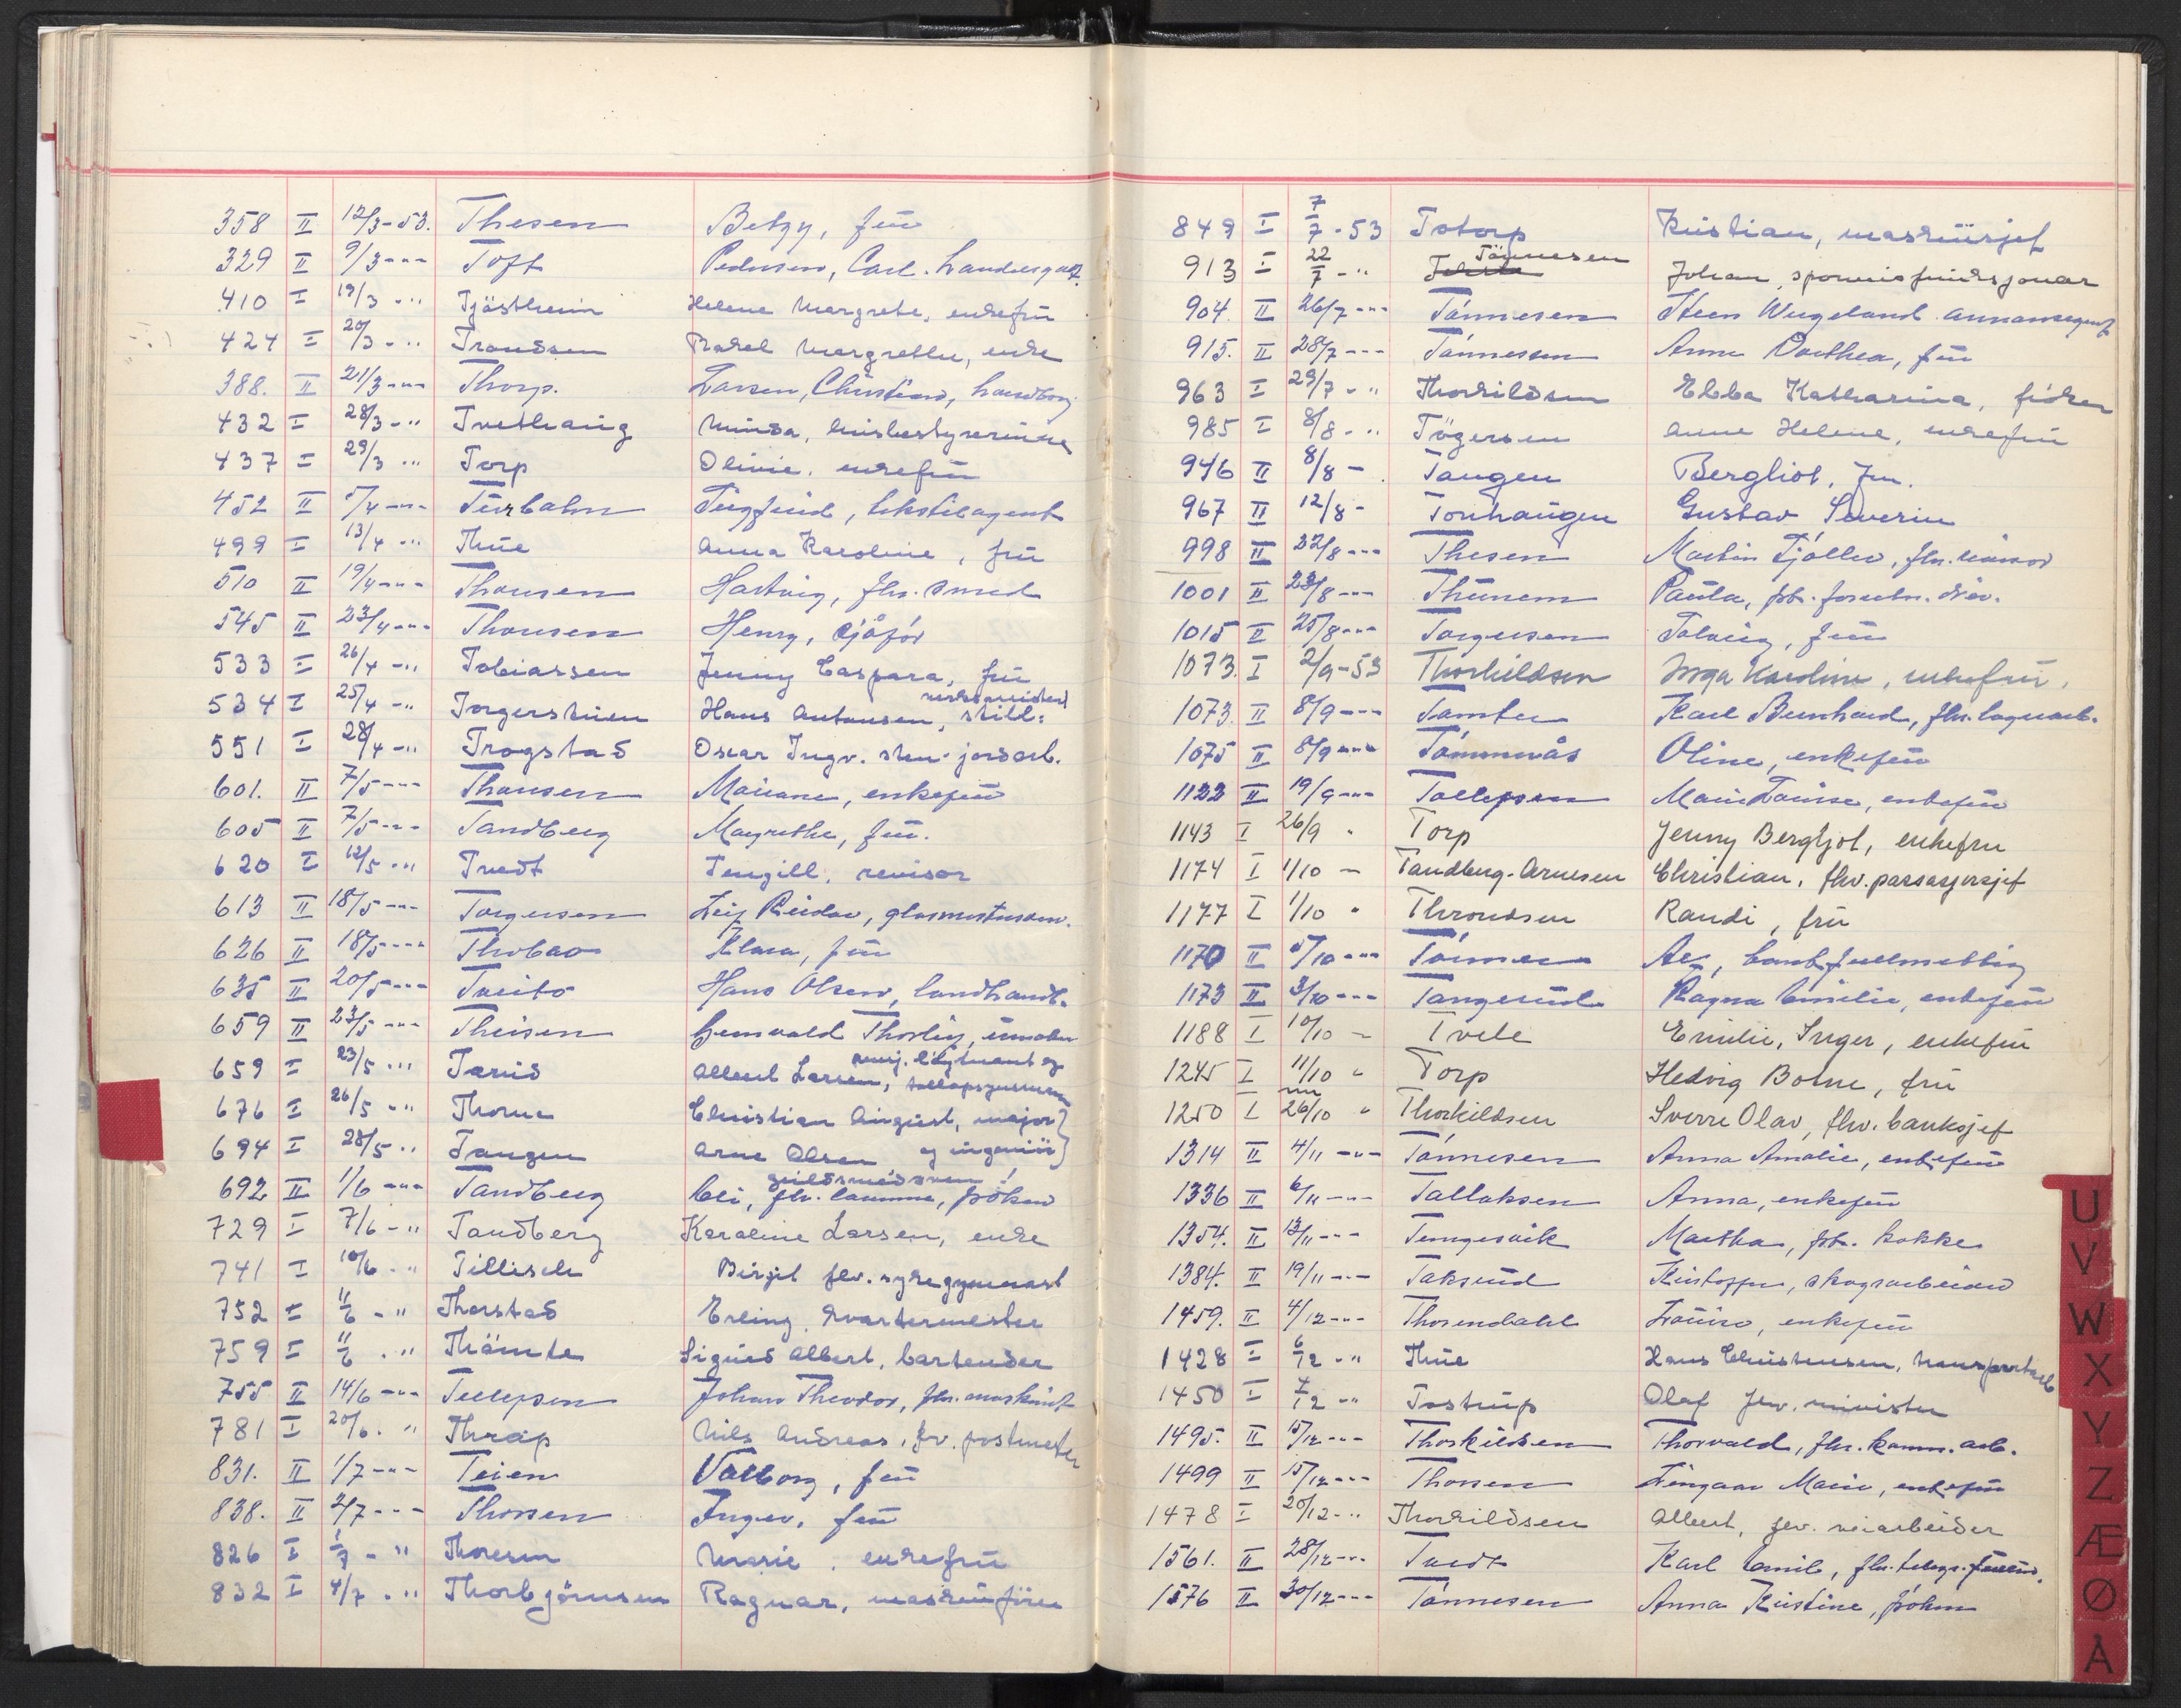 358 II 12/3-53. Thesen Betzy, frü
329 II 9/3-"- Toft Pedersen, Carl.
410 I 19/3 -" Tjöstheim Helene Margrete, enkefrü
424 I 20/3 -" Trondsen Rakel Margrethe, enke
388. II 21/3-"- Thorp. Larsen, Christian,
432 I 28/3-" Tvethaüg Minda, büsbestyrerinne
437 I 29/3 -" Torp Olivie, enkefrü
452 II 7/4-"- tekstilagent
499 I 13/4 -" Thüe Anna Karoline, frü
510 II 19/4-"- Thoresen Hartvig, fhv. smed
545 II 23/4-"- Thoresen Henry, sjåför
533 I 26/4 -" Tobiassen Jenny Caspara, frü
534 I 25/4 -" Torgerstüen Hans Antonsen,
551 I 28/4 -" Trogstad Oscar Ingv. sten-jordarb.
601. II 7/5-"- Thoresen enkefrü
605 II 7/5-"- Tandberg Magrethe, frü.
620 I 12/5 -" Tvedt Tengill, revisor
613 II 18/5-"- Torgersen Leif Reidar,
626 II 18/5-"- Klara, frü
635 II 20/5-"- Tveito Hans Olsen, landhandl.
659 II 23/5-"- Theisen
659 I 23/5 -" Albert Larsen, løytnant og
676 I 26/5 -" Thorne Christian Aügüst, major
694 I 28/5 -" Tangen Arne Olsen og ingeniør
güldsmedsvenn
692 II 1/6-"- Tandberg frøken
729 I 7/6-" Tandberg Karoline Larsen, enke
741 I 10/6 -" Tillisch Birgit fhv. sykegymnast
752 I 11/6 -" Thorstad Erling, kvartermester
759 I 11/6 -" Sigürd Albert, bartender
755 II 14/6-"- Tellefsen Johan Theodor, fhv. maskinist
781 I 20/6 -" Thrap Nils Andreas, fv. postmester
831. II 1/7-"- Teien Valborg, frü
838. II 2/7-"- Thorsen Inger, frü
826 I 1/7 -" Thoresen Marie, enkefrü
832 I 4/7 -" Thorbjörnsen Ragnar, maskinfører
849 I 7/7-53 Totorp Kristian, maskinsjef
913 I 22/7 -" Tönnesen Johan, sporveisfünksjonær
904 II 26/7-"- Tönnesen Steen Wergeland annonseagent
915. II 28/7-"- Tönnessen Anna Dorthea, frü
963 I 29/7 -" Thorkildsen Ebba Katharina, frøken
985 I 8/8 -" Tögersen Anne Helene, enkefrü
946 II 8/8 - Tangen Bergliot, frü.
967 II 12/8 - Tonhaügen Gustav Severin
998 II 22/8-"- Thesen Martin Tjöller,
1001 II 23/8-"- Paüla,
1015 II 25/8-"- Torgersen Solveig, frü
1073. I 2/9-53 Thorkildsen Inga Karoline, enkefrü.
1073. II 8/9-"- Karl Bernhard, fhv. lagerarb.
1075 II 8/9-"- Tömmerås Oline, enkefrü
1122 II 19/9-"- Tollefsen Marie Loüise, enkefrü
1143 I 26/9 " Torp Jenny Bergljot, enkefru
1174 I 1/10 - Tandberg-Arnesen Christian, fhv. passasjersjef
1177 I 1/10 " Throndsen Randi, frü
1170 II 5/10-"- bankfullmektig
1173 II 3/10-"- Tangerüd Ragna Emilie, enkefrü
1188 I 10/10 - Tvete Emilie, Inger, enkefrü
1245 I 11/10 " Torp Hedvig Botne, frü
1250 I 26/10 " Thorkildsen Sverre Olav, fhv. banksjef
1314 II 4/11-"- Tönnesen Anna Amalie, enkefrü
1336 II 6/11-"- Tallaksen Anna, enkefrü
1354. II 13/11-"- Tengesvik Martha, fhv. kokke
1384. II 19/11-"- Taksrüd Kristoffer, skogsarbeider
1459. II 4/12-"- Thorendahl Loüise, enkefrü
1428 I 6/12 -" Thüe Hans Christensen,
1450 I 7/12 -" Tostrüp Olaf fhv. minister
1495. II 15/12-"- Thorkildsen Thorvald, fhv. komm. arb.
1499 II 15/12-"- Thorsen Marie, enkefrü
1478 I 20/12-" Thorkildsen Albert, fhv. veiarbeider
1561. II 28/12-"- Tvedt Karl Emil,
1576 II 30/12-"- Tönnesen Anna Kristine, frøken
U
V
W
X
Y
Z
Æ
Ø
A